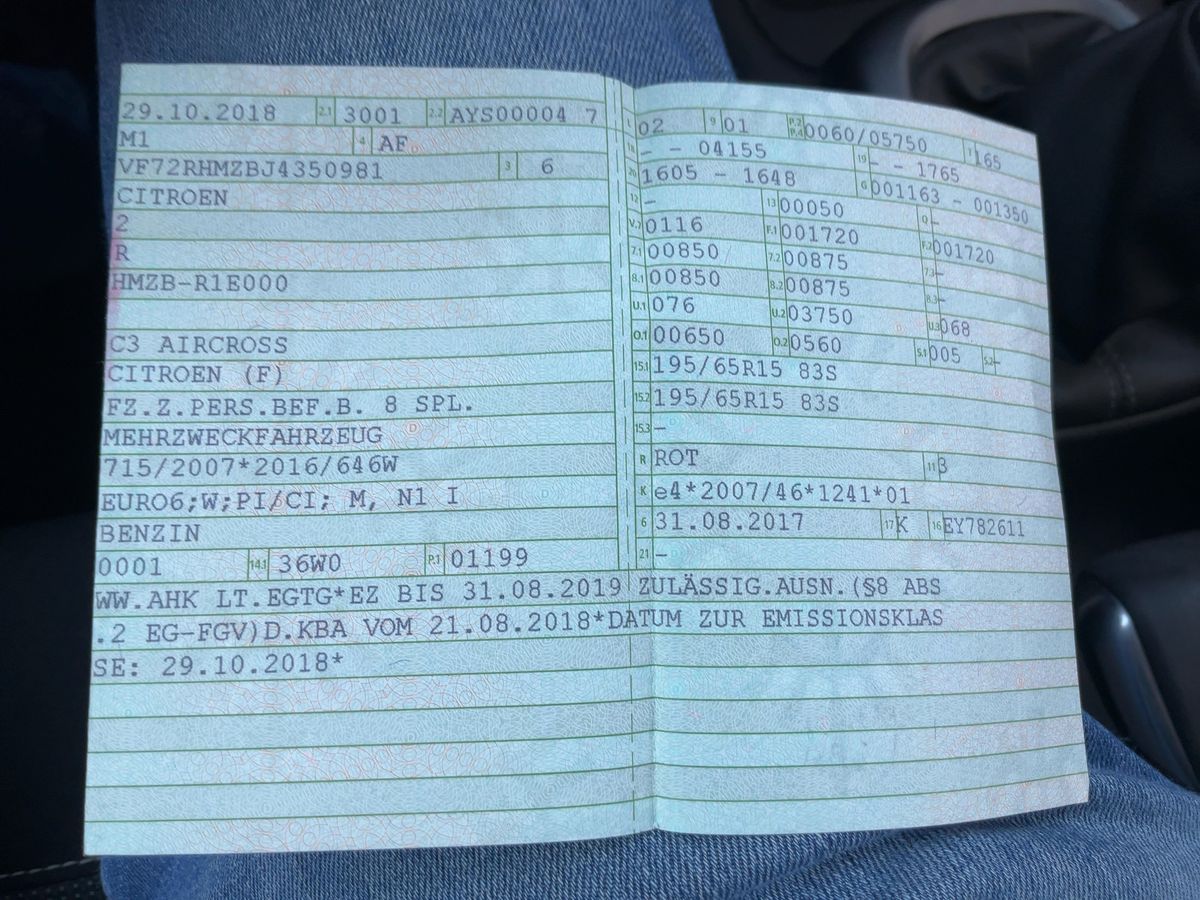 29.10.2018 2.1 3001 2.2 AYS00004 7
M1 4 AF
VF72RHMZBJ4350981 3 6
CITROEN
2
R
HMZB-R1E000
C3 AIRCROSS
CITROEN (F)
FZ.Z.PERS.BEF.B. 8 SPL.
MEHRZWECKFAHRZEUG
715/2007*2016/646W
EURO6;W;PI/CI; M, N1 I
BENZIN
0001 14.1 36W0 P.1 01199
L 02 9 01 P.2 P.4 0060/05750 T 165
18 - - 04155 19 - - 1765
20 1605 - 1648 G 001163 - 001350
12 - 13 00050 Q -
V.7 0116 F.1 001720 F.2 001720
7.1 00850 7.2 00875 7.3 -
8.1 00850 8.2 00875 8.3 -
U.1 076 U.2 03750 U.3 068
O.1 00650 O.2 0560 S.1 005 S.2 -
15.1 195/65R15 83S
15.2 195/65R15 83S
15.3 -
R ROT 11 3
K e4*2007/46*1241*01
6 31.08.2017 17 K 16 EY782611
21 -
WW.AHK LT.EGTG*EZ BIS 31.08.2019 ZULÄSSIG.AUSN.(§8 ABS
.2 EG-FGV)D.KBA VOM 21.08.2018*DATUM ZUR EMISSIONSKLAS
SE: 29.10.2018*